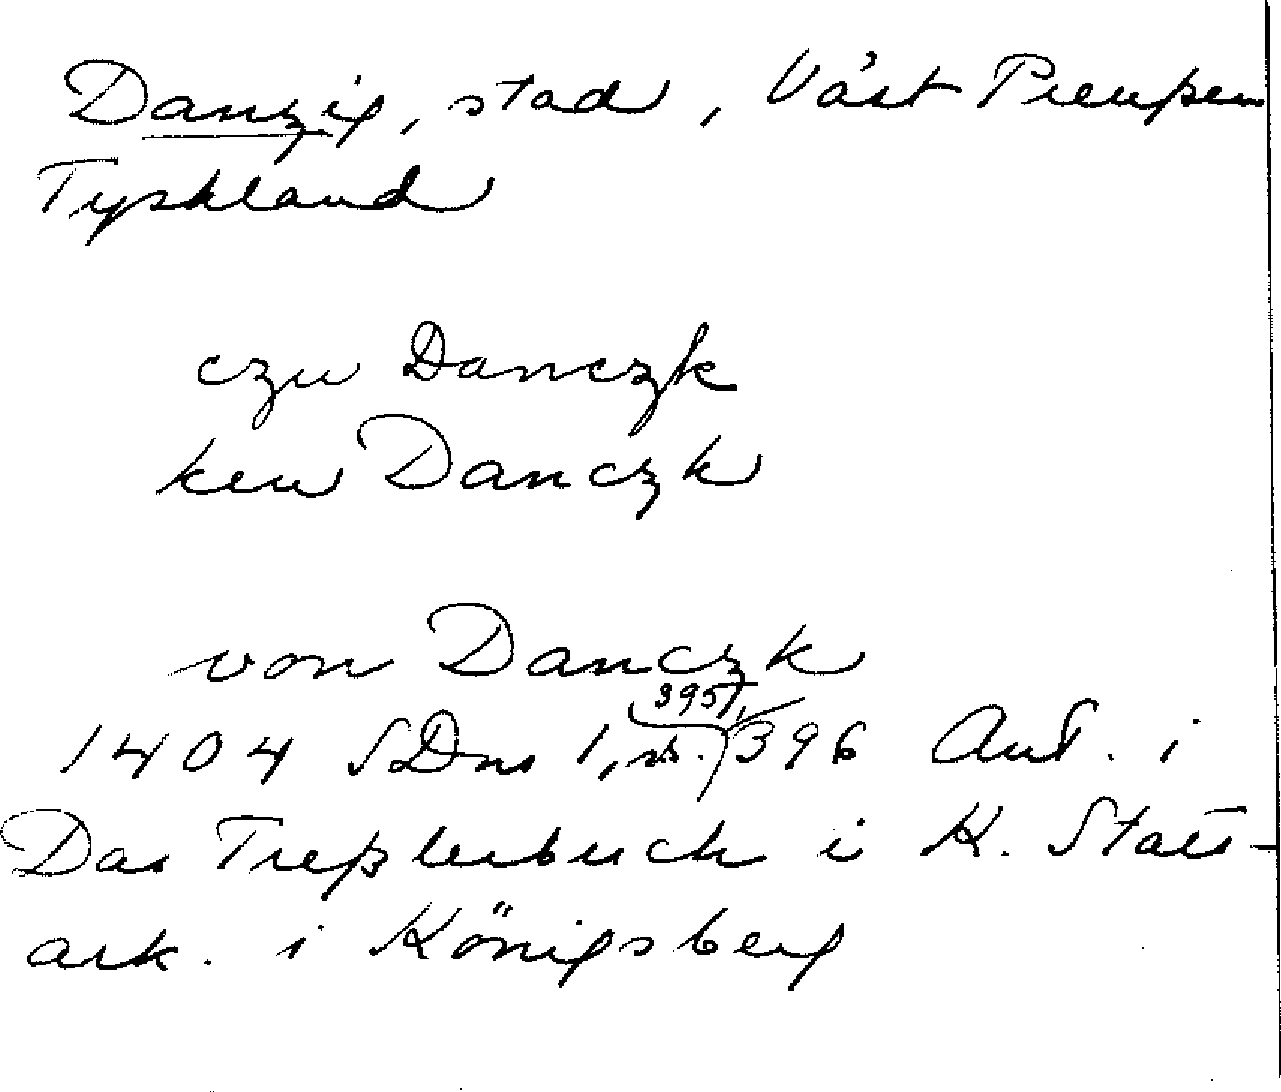 Danzig, stad, Väst Preußen
Tyskland
czu Danczk
ken Danczk
von Danczk
395,
1404 SDns 1, s. 396 Ant. i
Das Treßlerbuch i K. Stats-
ark. i Königsberg